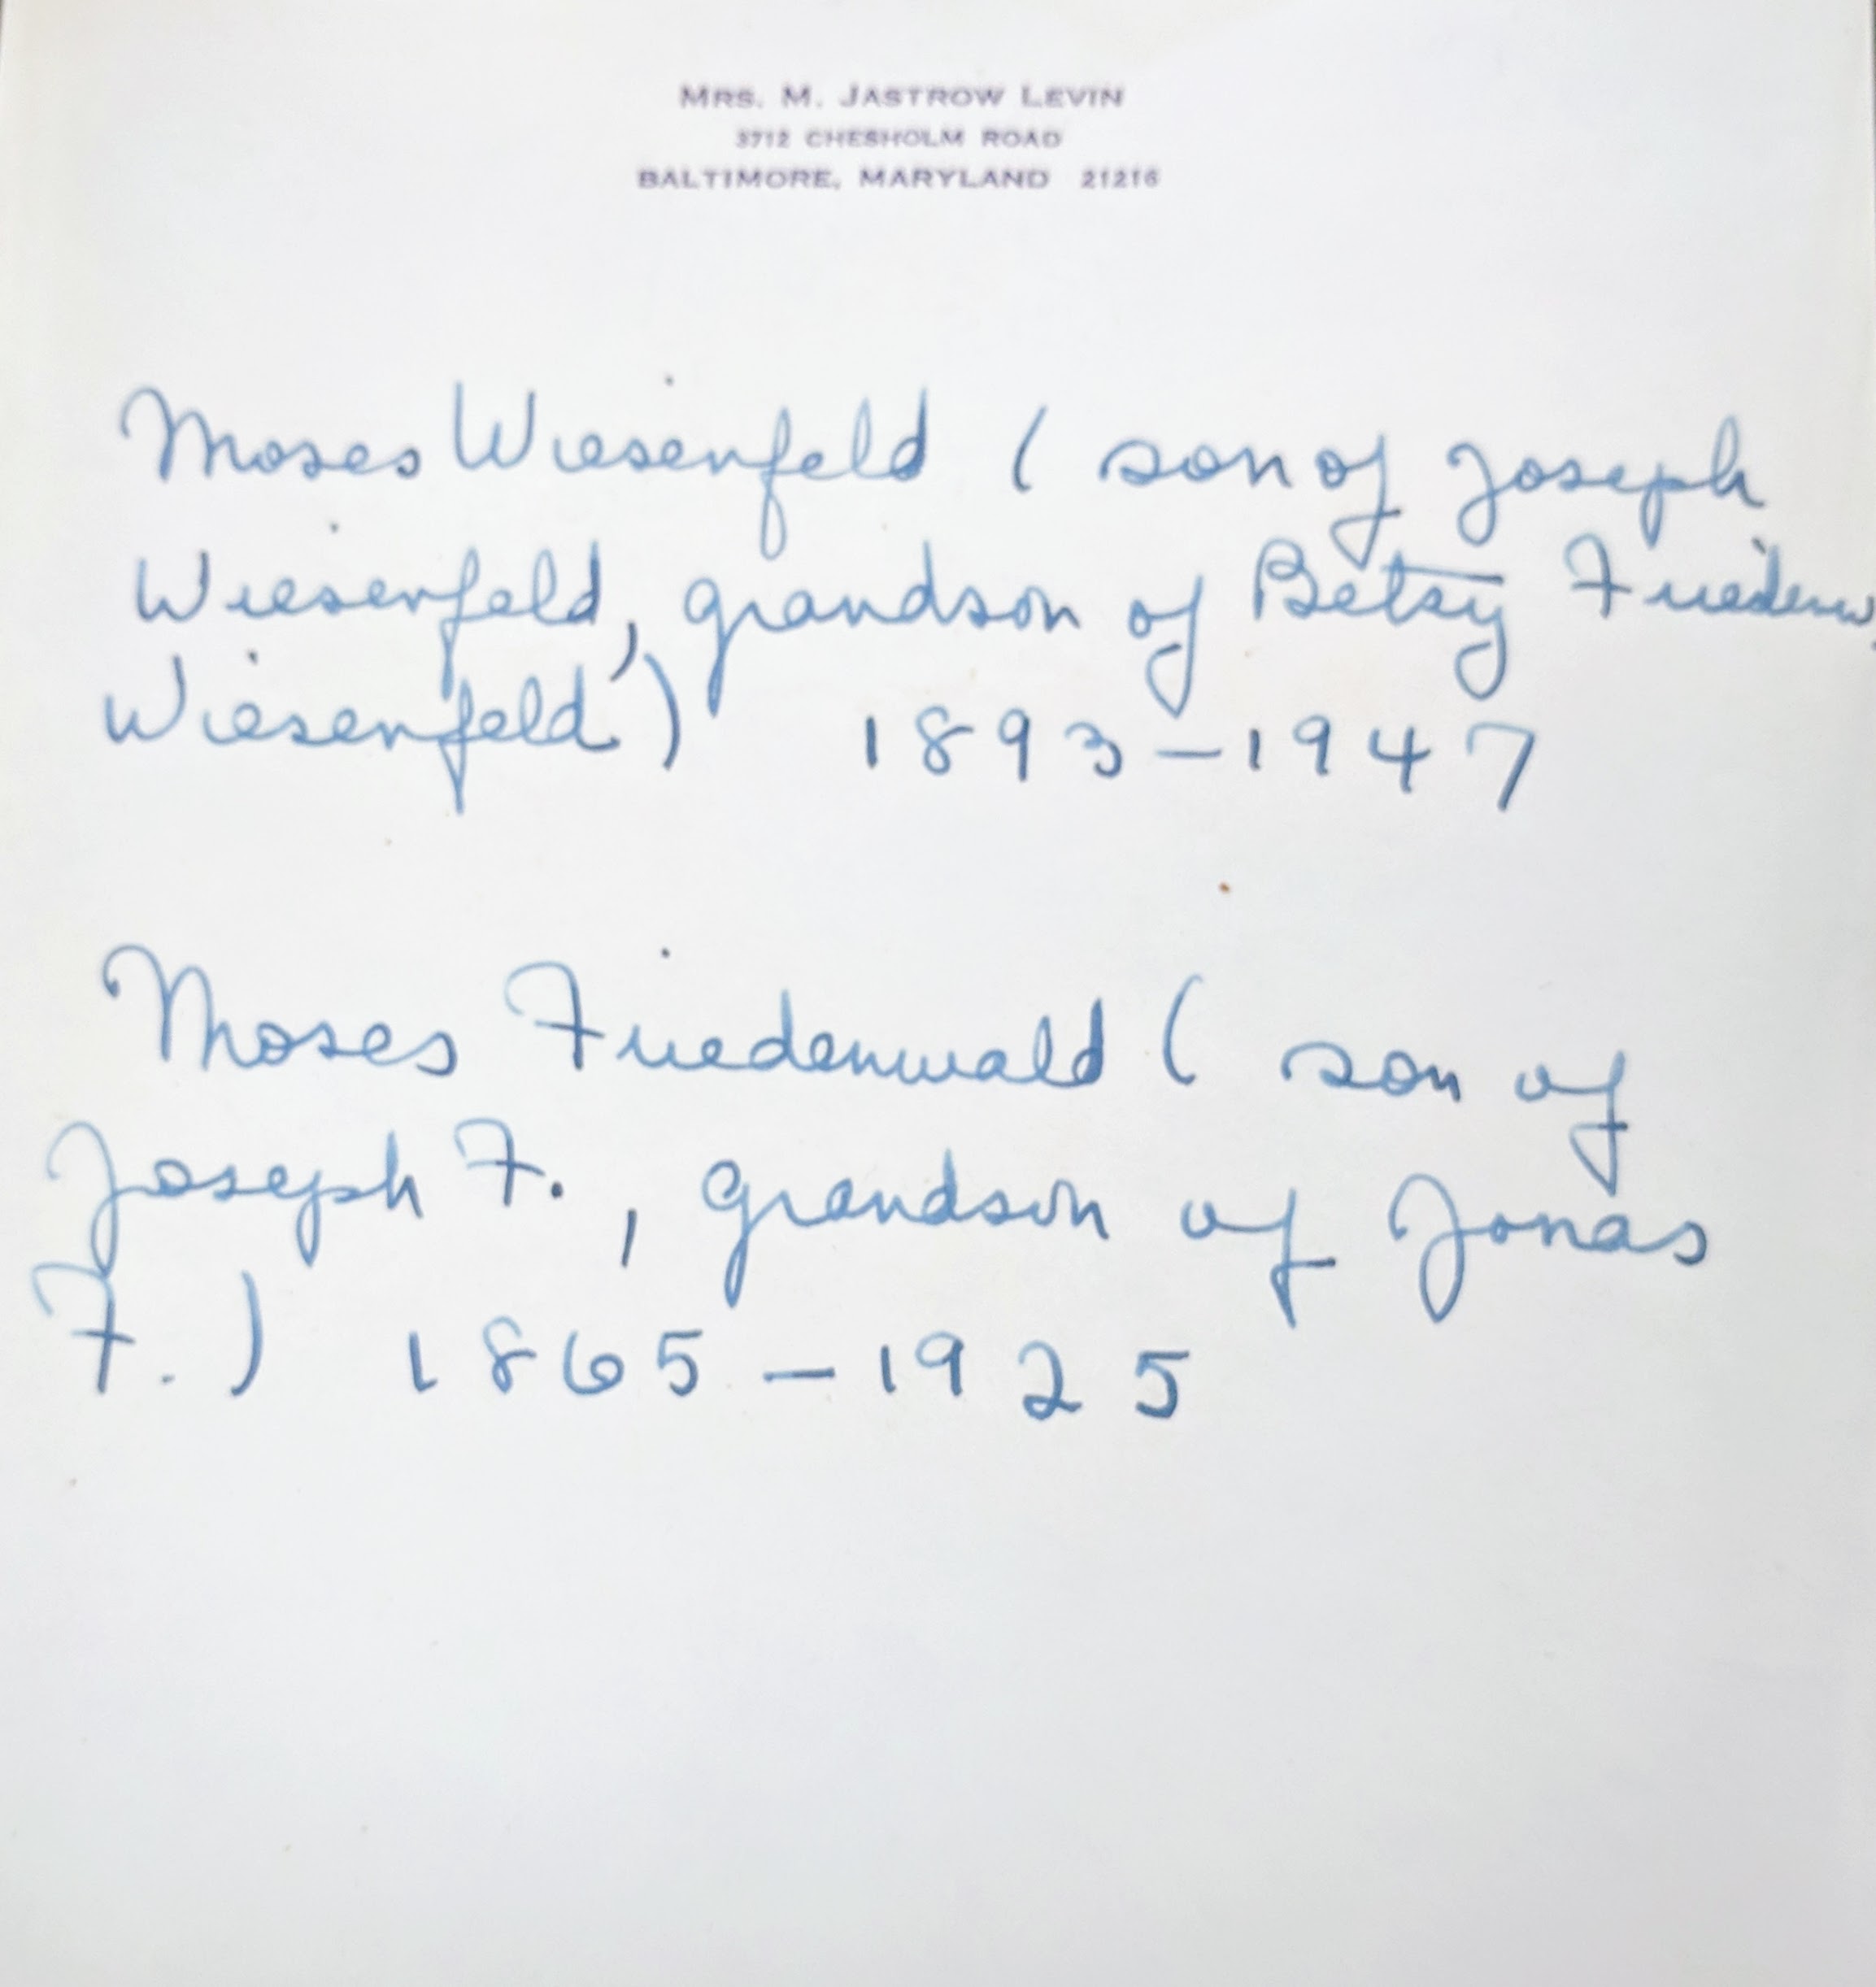 MRS. M. JASTROW LEVIN
3712 CHESHOLM ROAD
BALTIMORE, MARYLAND 21216
Moses Wiesenfeld ( son of Joseph
Wiesenfeld, grandson of Betsy Friedenw
Wiesenfeld) 1893-1947
Moses Friedenwald ( son of
Joseph F., grandson of Jonas
F.) 1865-1925